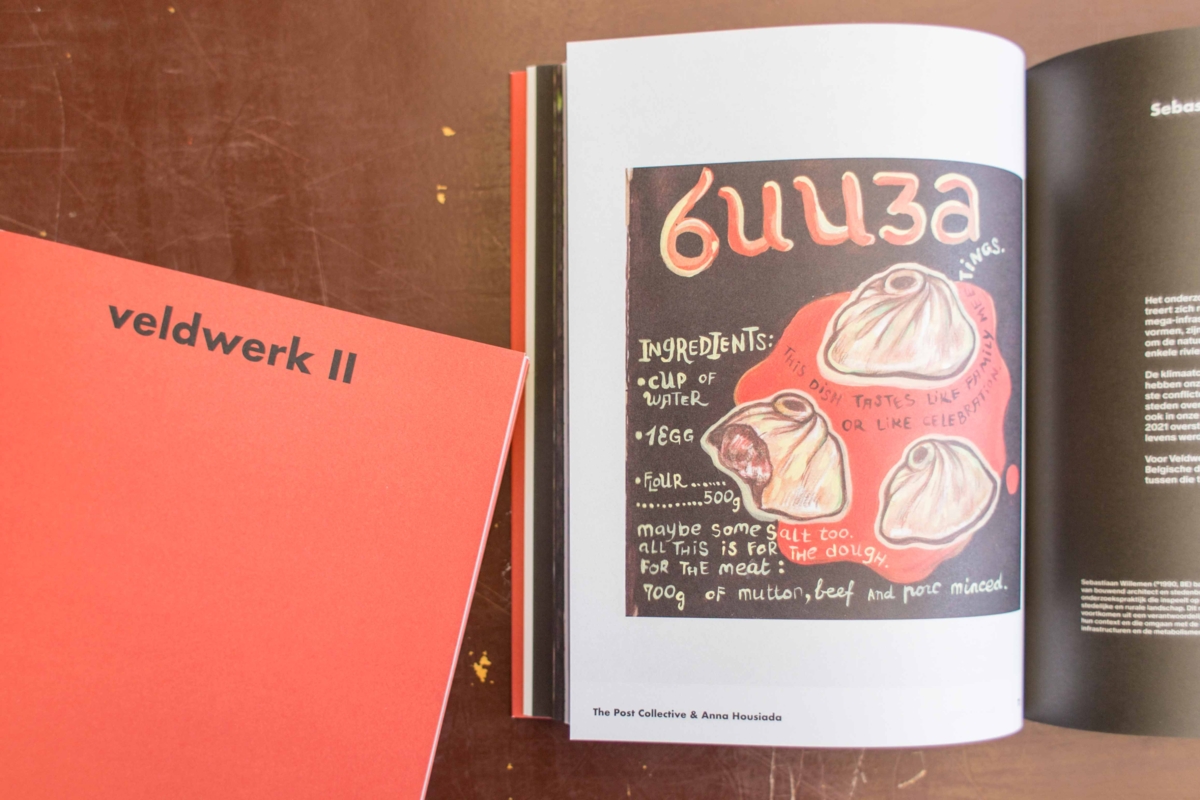 veldwerk II
бuuза
INGREDIENTS:
•CUP OF
WATER
•1EGG
•FLOUR......
...........500g
maybe some salt too.
ALL THIS IS FOR THE dough.
FOR THE meat:
700g OF mutton, beef AND porc minced.
THIS DISH TASTES LIKE FAMILY MEETINGS.
OR LIKE CELEBRATION.
The Post Collective & Anna Housiada
Sebas
Het onderz
treert zich
mega-infra
vormen, zij
om de natu
enkele rivie
De klimaat
hebben onz
ste conflict
steden ove
ook in onze
2021 overst
levens we
Voor Veldw
Belgische d
tussen die t
Sebastiaan Willemen (°1990, BE)
van bouwend architect en stede
onderzoekspraktijk die inspeelt
stedelijke en rurale landschap.
voortkomen uit een verantwoor
hun context en die omgaan met de
infrastructuren en de metabolism